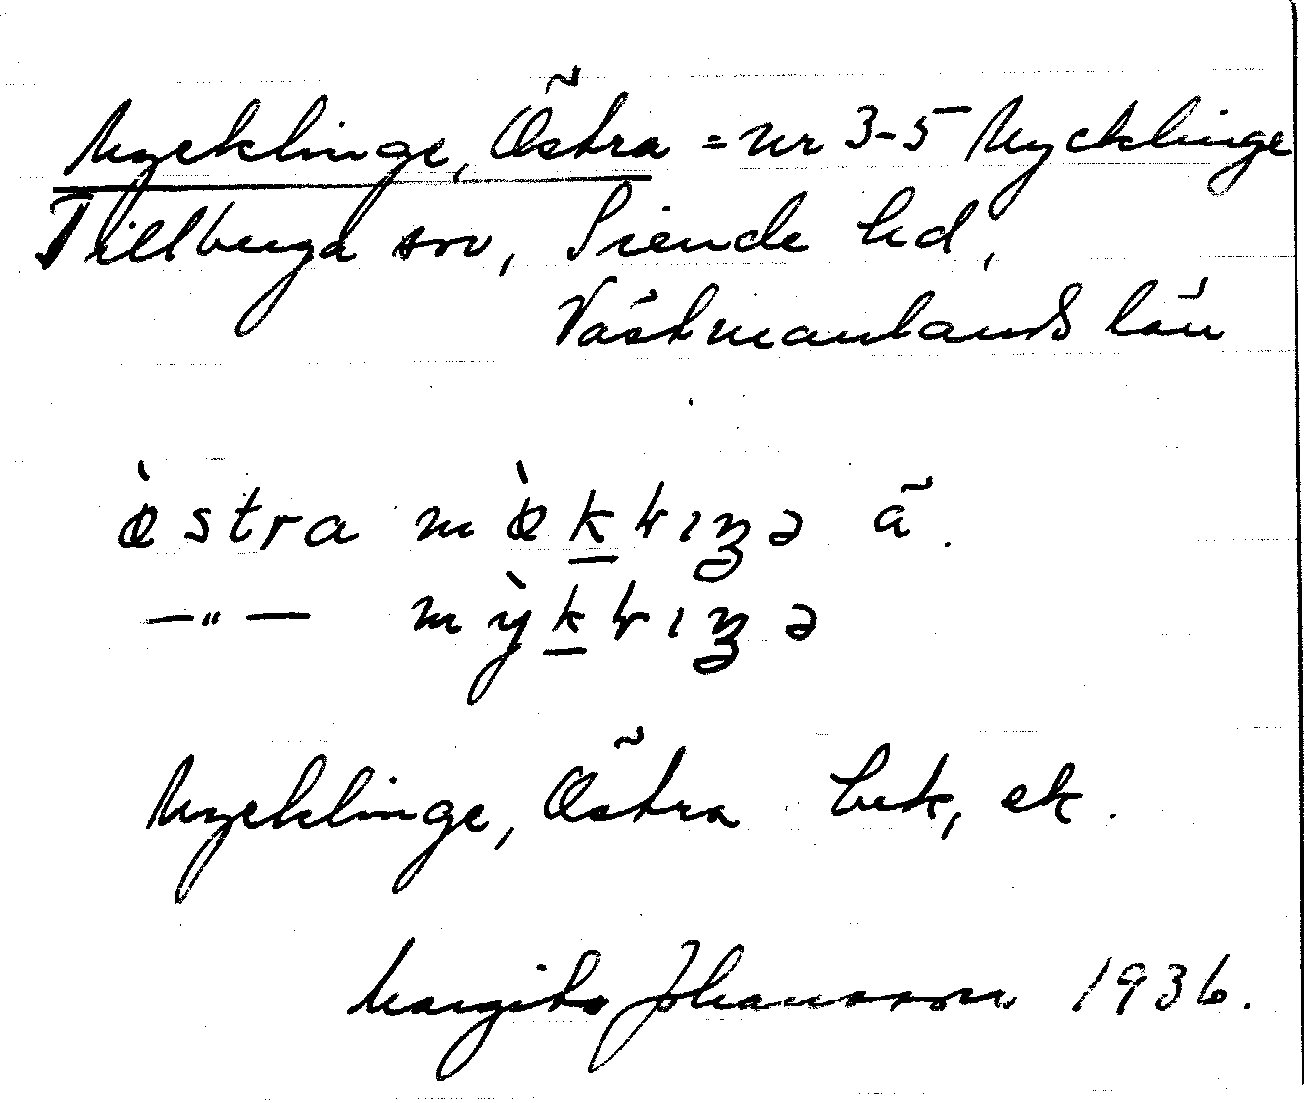 Mycklinge, Östra = nr 3-5 Mycklinge
Tillberga sn, Siende hd,
Västmanlands län
œ̀stra mœ̀kɫıŋə ã.
—"— mỳkɫıŋə
Mycklinge, Östra bek, ek.
Margita Johansson 1936.